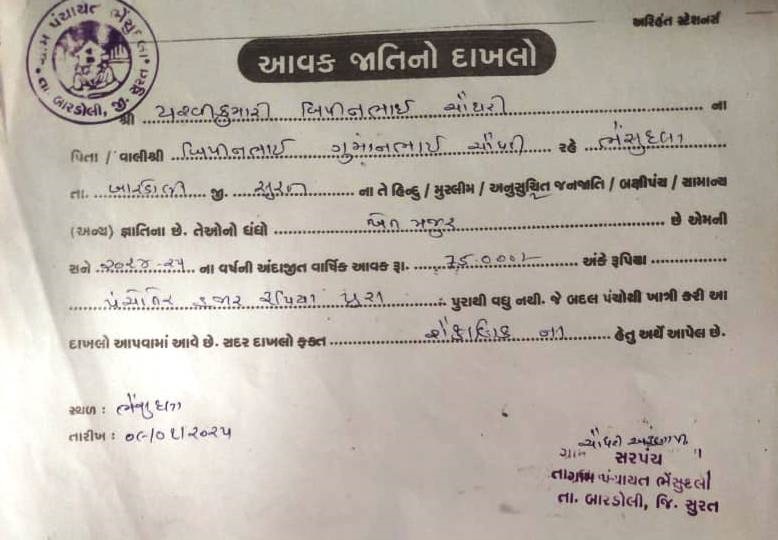 ગ્રામ પંચાયત ભેંસુદલા
તા. બારડોલી, જી. સુરત
અરિહંત સ્ટેશનર્સ
આવક જાતિનો દાખલો
શ્રી ......... બિપીનભાઈ ચૌધરી ......... ના
પિતા / વાલીશ્રી ...બિપીનભાઈ ગુમાનભાઈ ચૌધરી... રહે ...ભેંસુદલા...
તા. ...બારડોલી... જી. ...સુરત... ના તે હિન્દુ / મુસ્લીમ / અનુસુચિત જનજાતિ / બક્ષીપંચ / સામાન્ય
(અન્ય) જ્ઞાતિના છે. તેઓનો ધંધો ......... ખેત મજુર ......... છે એમની
સને ..૨૦૨૪-૨૫.. ના વર્ષની અંદાજીત વાર્ષિક આવક રૂા. ......... અંકે રૂપિયા .........
......... હજાર રૂપિયા પુરા ......... પુરાથી વધુ નથી. જે બદલ પંચોથી ખાત્રી કરી આ
દાખલો આપવામાં આવે છે. સદર દાખલો ફક્ત ......... શૈક્ષણિક ના ......... હેતુ અર્થે આપેલ છે.
સ્થળ : ભેંસુદલા
તારીખ :
ચૌધરી
ગ્રામ સરપંચ
ગ્રામ પંચાયત ભેંસુદલા
તા. બારડોલી, જિ. સુરત